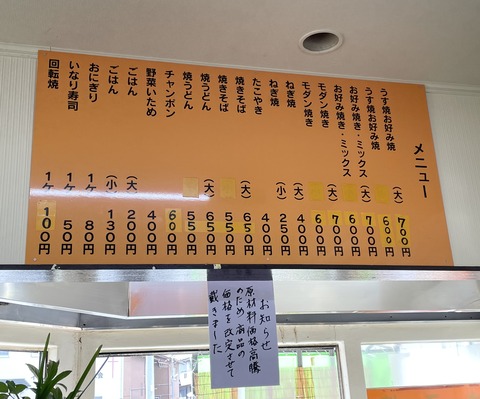 メニュー
うす焼お好み焼 (大) 700円
うす焼お好み焼 600円
お好み焼き・ミックス (大) 700円
お好み焼き・ミックス 600円
モダン焼き (大) 700円
モダン焼き 600円
ねぎ焼 (大) 400円
ねぎ焼 (小) 250円
たこやき 400円
焼きそば (大) 650円
焼きそば 550円
焼うどん (大) 650円
焼うどん 550円
チャンポン 600円
野菜いため 400円
ごはん (大) 200円
ごはん (小) 130円
おにぎり 1ケ 80円
いなり寿司 1ケ 50円
回転焼 1ケ 100円
お知らせ
原材料価格高騰
のため商品の
価格を改定させて
戴きました